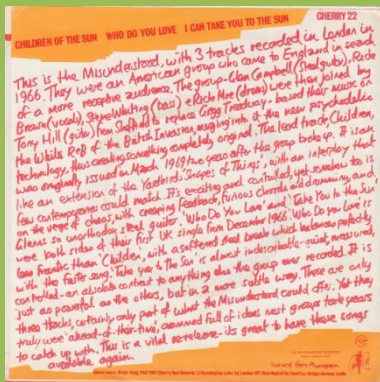 CHERRY 22
CHILDREN OF THE SUN WHO DO YOU LOVE I CAN TAKE YOU TO THE SUN
This is the Misunderstood, with 3 tracks recorded in London in
1966. They were an American group who came to England in search
of a more receptive audience. The group - Glen Campbell (steel guitar), Rick
Brown (vocals), Steve Whiting (bass) & Rick Moe (drums) were then joined by
Tony Hill (guitar) from Sheffield to replace Gregg Treadway - based their music on
the White R&B of the British Invasion, merging into it the new psychedelic
technology, thus creating something completely original. The lead track, Children,
was originally issued in March 1969 two years after the group broke up. It is an
like an extension of the Yardbirds' 'Shapes of Things', with an interplay that
few contemporaries could match. It's exciting and controlled, yet somehow too is
on the verge of chaos, with creeping feedback, furious chords and drumming, and
Glenns so unorthodox steel guitar. 'Who Do You Love' and 'I Take You to the Sun',
were both sides of their first UK single from December 1966. Who Do You Love is
less frantic than 'Children', with a softened steel break which balances perfectly
with the faster song. 'Take You to the Sun' is almost indescribable - quiet, measured,
controlled - an absolute contrast to anything else the group ever recorded. It is
just as powerful as the others, but in a more subtle way. There are only
three tracks, certainly only part of what the Misunderstood could offer. Yet they
truly were 'ahead-of-their-time', crammed full of ideas most groups took years
to catch up with. This is a vital re-release - its great to have these songs
available again.